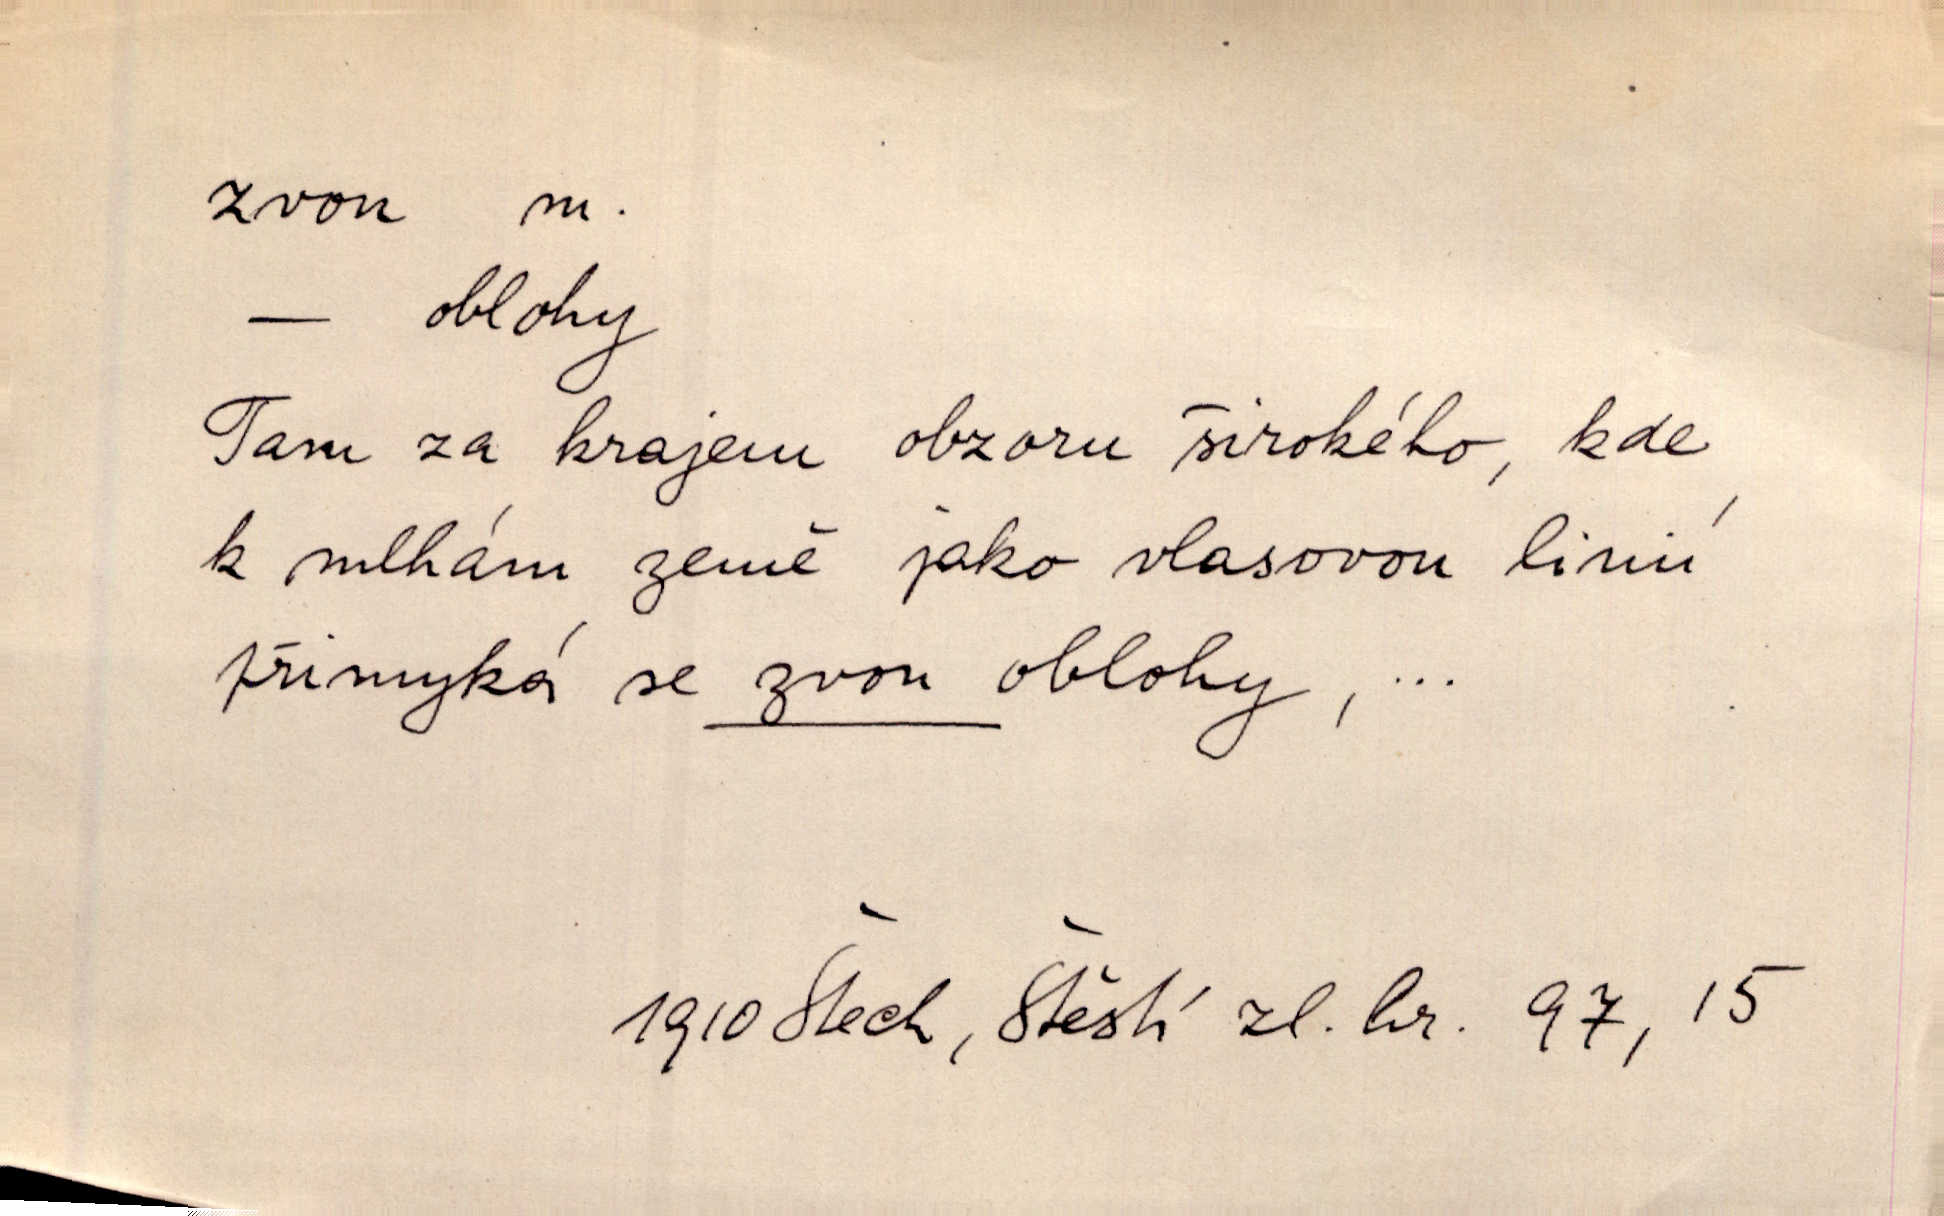 zvon m.
— oblohy
Tam za krajem obzoru širokého, kde,
k mlhám země jako vlasovou linií
přimyká se zvon oblohy, ...
1910 Štech, Štěstí zl. hr. 97, 15